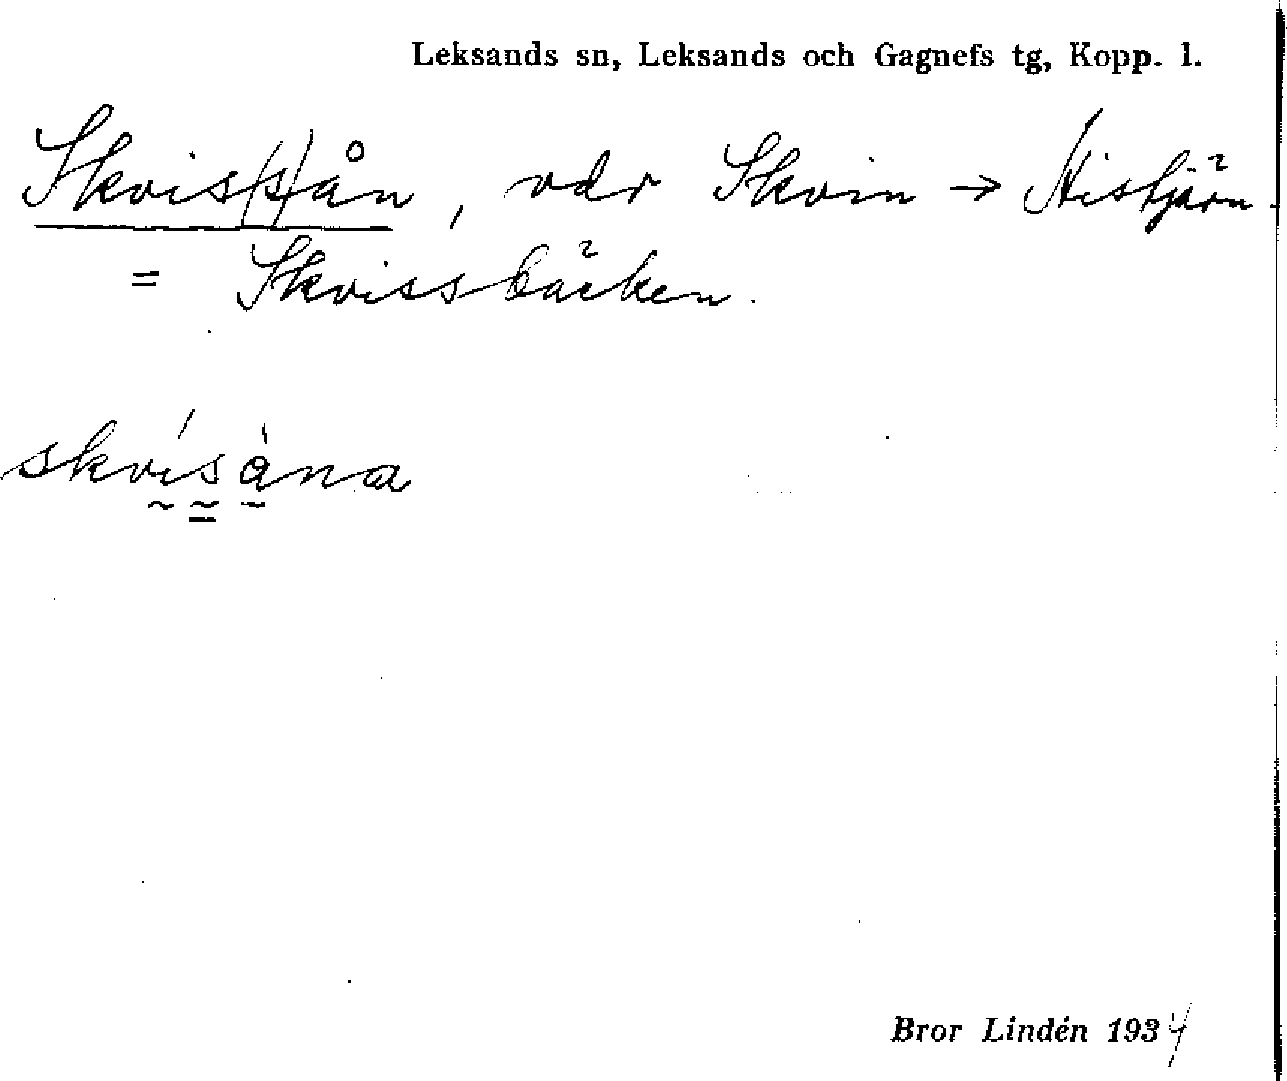 Leksands sn, Leksands och Gagnefs tg, Kopp. l.
Skvis(s)ån, vdr Skvin → Histjärn.
= Skvissbäcken.
skvísàna
Bror Lindén 1934